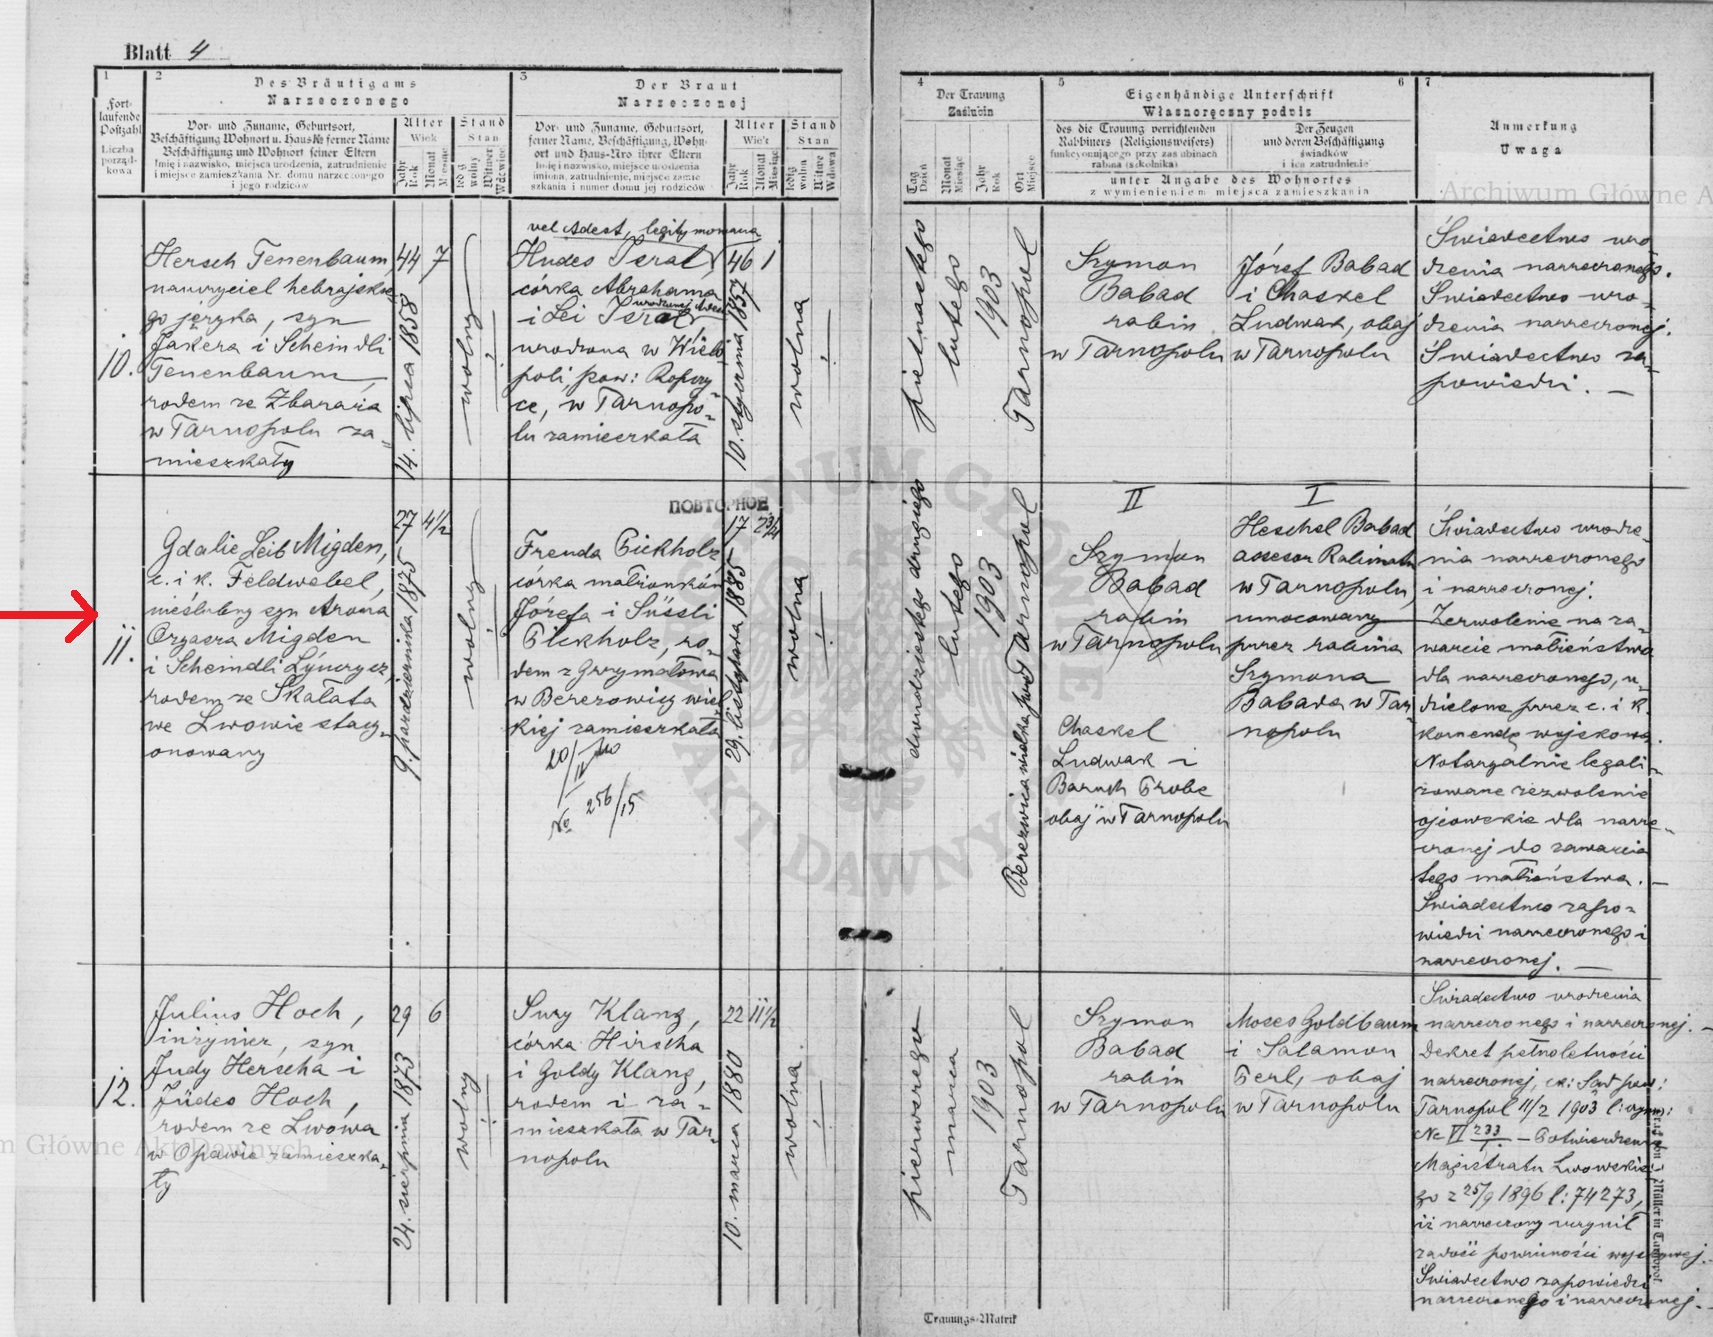 Blatt 4
1
2
Des Bräutigams
Narzeczonego
3
Der Braut
Narzeczonej
4
Der Trauung
Zaślubin
5
6
Eigenhändige Unterschrift
Własnoręczny podpis
7
Anmerkung
Uwaga
Fort-
laufende
Postzahl
Liczba
porząd-
kowa
Vor- und Zuname, Geburtsort,
Beschäftigung Wohnort u. Haus№ ferner Name
Beschäftigung und Wohnort seiner Eltern
Imię i nazwisko, miejsce urodzenia, zatrudnienie
i miejsce zamieszkania Nr. domu narzeczonego
i jego rodziców
Alter
Wiek
Jahr
Rok
Monat
Miesiąc
Stand
Stan
ledig
wolny
Witwer
Wdowiec
Vor- und Zuname, Geburtsort,
ferner Name, Beschäftigung, Wohn-
ort und Haus-Nro ihrer Eltern
Imię i nazwisko, miejsce urodzenia
imiona, zatrudnienie, miejsce zamie
szkania i numer domu jej rodziców
Alter
Wiek
Jahr
Rok
Monat
Miesiąc
Stand
Stan
ledig
wolna
Witwe
Wdowa
Tag
Dzień
Monat
Miesiąc
Jahr
Rok
Ort
Miejsce
des die Trauung verrichtenden
Rabbiners (Religionsweisers)
funkcyonującego przy zaślubinach
rabina (szkolnika)
Der Zeugen
und deren Beschäftigung
świadków
i ich zatrudnienie
unter Angabe des Wohnortes
z wymienieniem miejsca zamieszkania
10.
Hersch Tenenbaum,
nauczyciel hebrajskie
go języka, syn
Jakera i Scheindli
Tenenbaum,
rodem ze Zbaraża
w Tarnopolu za-
mieszkały
44 7
14. lipca 1858
wolny
vel Adest, legitymowana
Hudes Teral,
córka Abrahama
i Lei Teral
urodzona w Wielo
poli, pow: Ropczy
ce, w Tarnopo-
lu zamieszkała
46 1
10. stycznia 1857
wolna
piętnastego
lutego
1903
Tarnopol
Szymon
Babad
rabin
w Tarnopolu
Józef Babad
i Chaskel
Ludwak, obaj
w Tarnopolu
Świadectwo uro
dzenia narzeczonego.
Świadectwo uro-
dzenia narzeczonej.
Świadectwo za-
powiedzi. —
11.
Gdalie Leib Migden,
c. i k. Feldwebel,
nieślubny syn Arona
Orzasza Migden
i Scheindli
rodem ze Skałata
we Lwowie stacy-
onowany
27 4½
9. października 1875
wolny
ПОВТОРНОЕ
Freuda Eickholz
córka małżonków
Józefa i Süssli
Eickholz, ro-
dem z Grzymałowa
w Berezowicy wiel
kiej zamieszkała
20/II
№ 256/15
17 2¾
29. listopada 1885
wolna
dwudziestego drugiego
lutego
1903
Berezowica wielka pod Tarnopol
II
Szymon
Babad
rabin
w Tarnopolu
Chaskel
Ludwak i
Baruch Probe
obaj w Tarnopolu
I
Heschel Babad
assesor Rabinatu
w Tarnopolu,
umocowany
przez rabina
Szymona
Babada w Tar-
nopolu
Świadectwo urodze-
nia narzeczonego
i narzeczonej.
Zezwolenie na za-
warcie małżeństwa
dla narzeczonego, u-
dzielone przez c. i k.
komendę wojskową.
Notaryalnie legali-
zowane zezwolenie
ojcowskie dla narze-
czonej do zawarcia
tego małżeństwa. —
Świadectwo zapo-
wiedzi narzeczonego i
narzeczonej. —
12.
Julius Hoch,
inżynier, syn
Judy Herscha i
Jüdes Hoch,
rodem ze Lwowa
w Opawie zamieszka-
ły
29 6
24. sierpnia 1873
wolny
Sury Klang,
córka Hirscha
i Goldy Klang,
rodem i za-
mieszkała w Tar-
nopolu
22 11½
10. marca 1880
wolna
pierwszego
marca
1903
Tarnopol
Szymon
Babad
rabin
w Tarnopolu
Moses Goldbaum
i Salamon
Perl, obaj
w Tarnopolu
Świadectwo urodzenia
narzeczonego i narzeczonej. —
Dekret pełnoletności
narzeczonej, ck: Sąd pow:
Tarnopol 11/2 1903
Magistratu Lwowskie-
go z 25/9 1896 l: 74273,
iż narzeczony uczynił
zadość powinności wojskowej. —
Świadectwo zapowiedzi
narzeczonego i narzeczonej. —
Trauungs-Matrik
Archiwum Główne A
m Główne Akt Dawnych